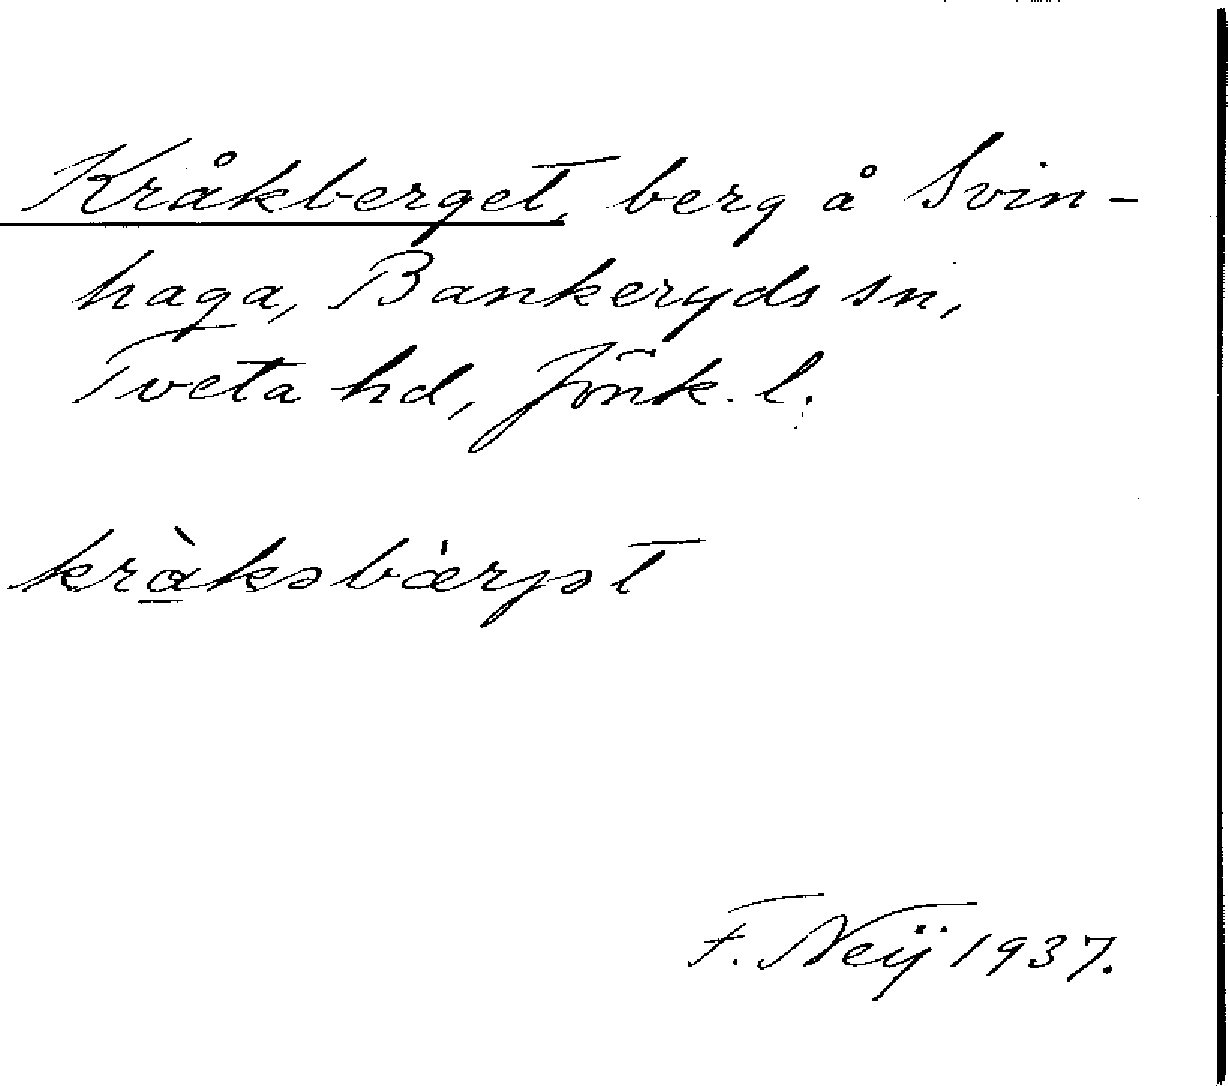 Kråkberget, berg å Svin-
haga, Bankeryds sn,
Tveta hd, Jönk. l.
kràksbærjət
F. Neÿ 1937.